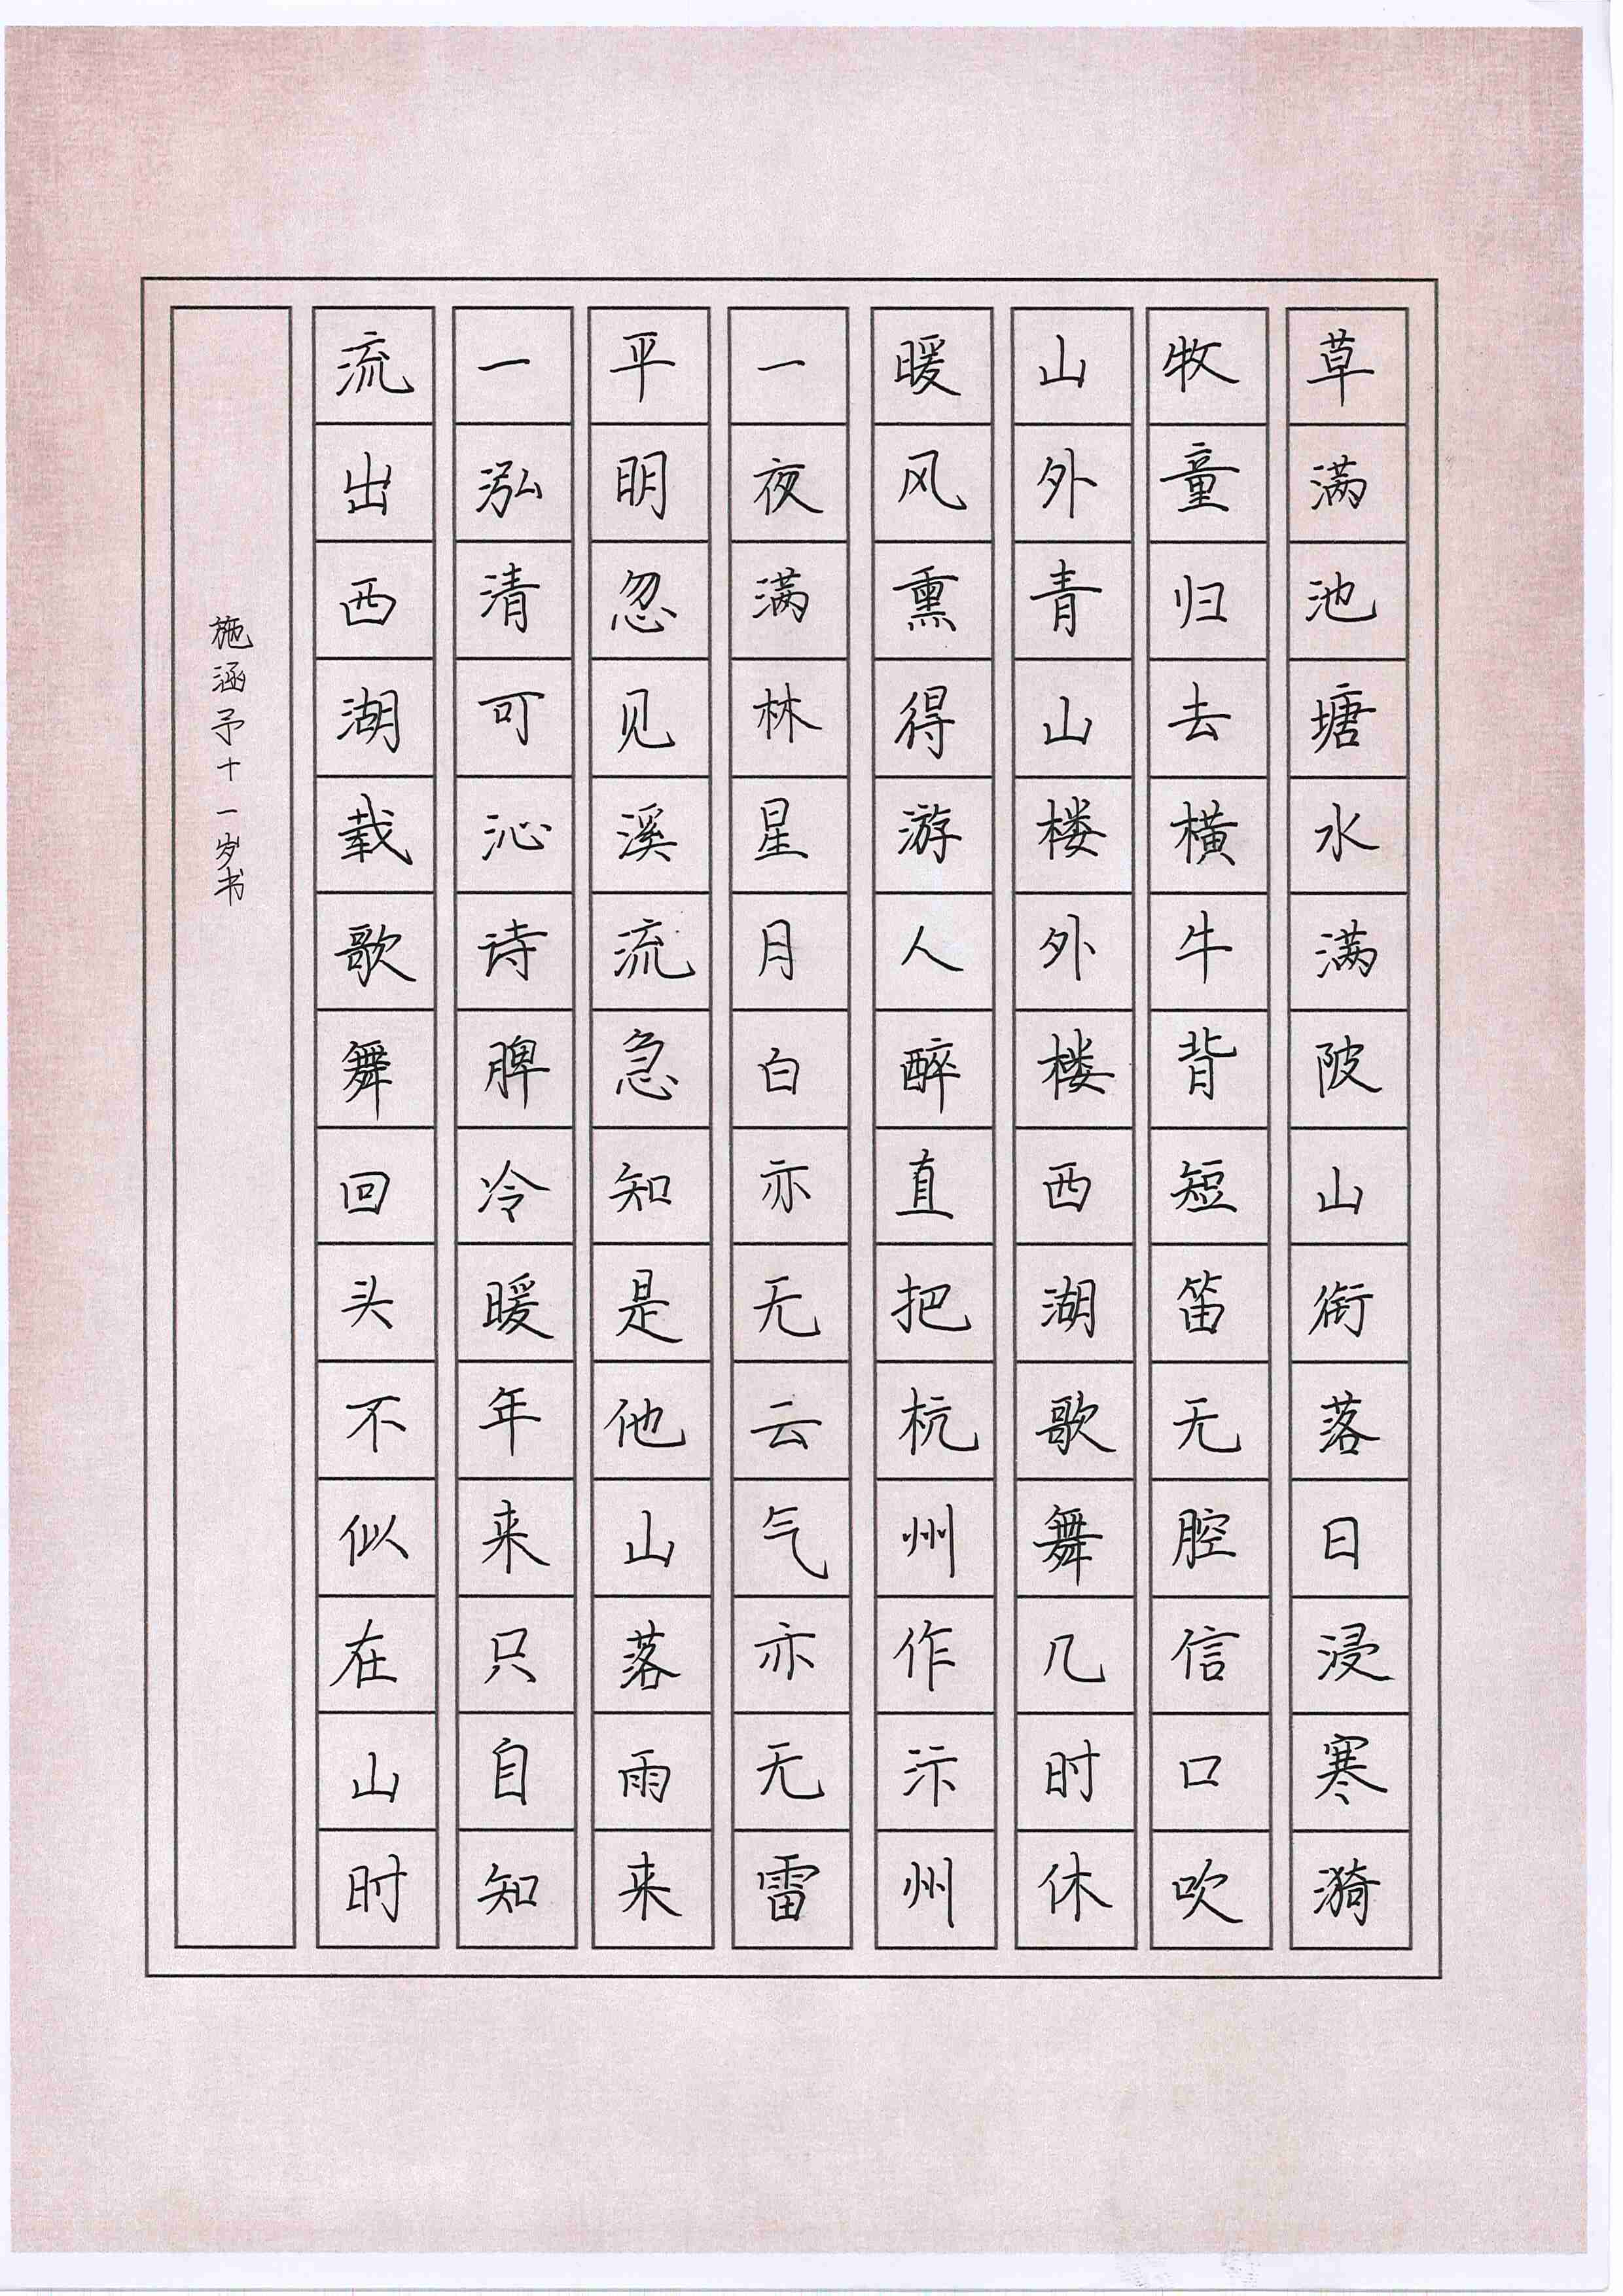 草满池塘水满陂山衔落日浸寒漪
牧童归去横牛背短笛无腔信口吹
山外青山楼外楼西湖歌舞几时休
暖风熏得游人醉直把杭州作汴州
一夜满林星月白亦无云气亦无雷
平明忽见溪流急知是他山落雨来
一泓清可沁诗脾冷暖年来只自知
流出西湖载歌舞回头不似在山时
施涵予十一岁书